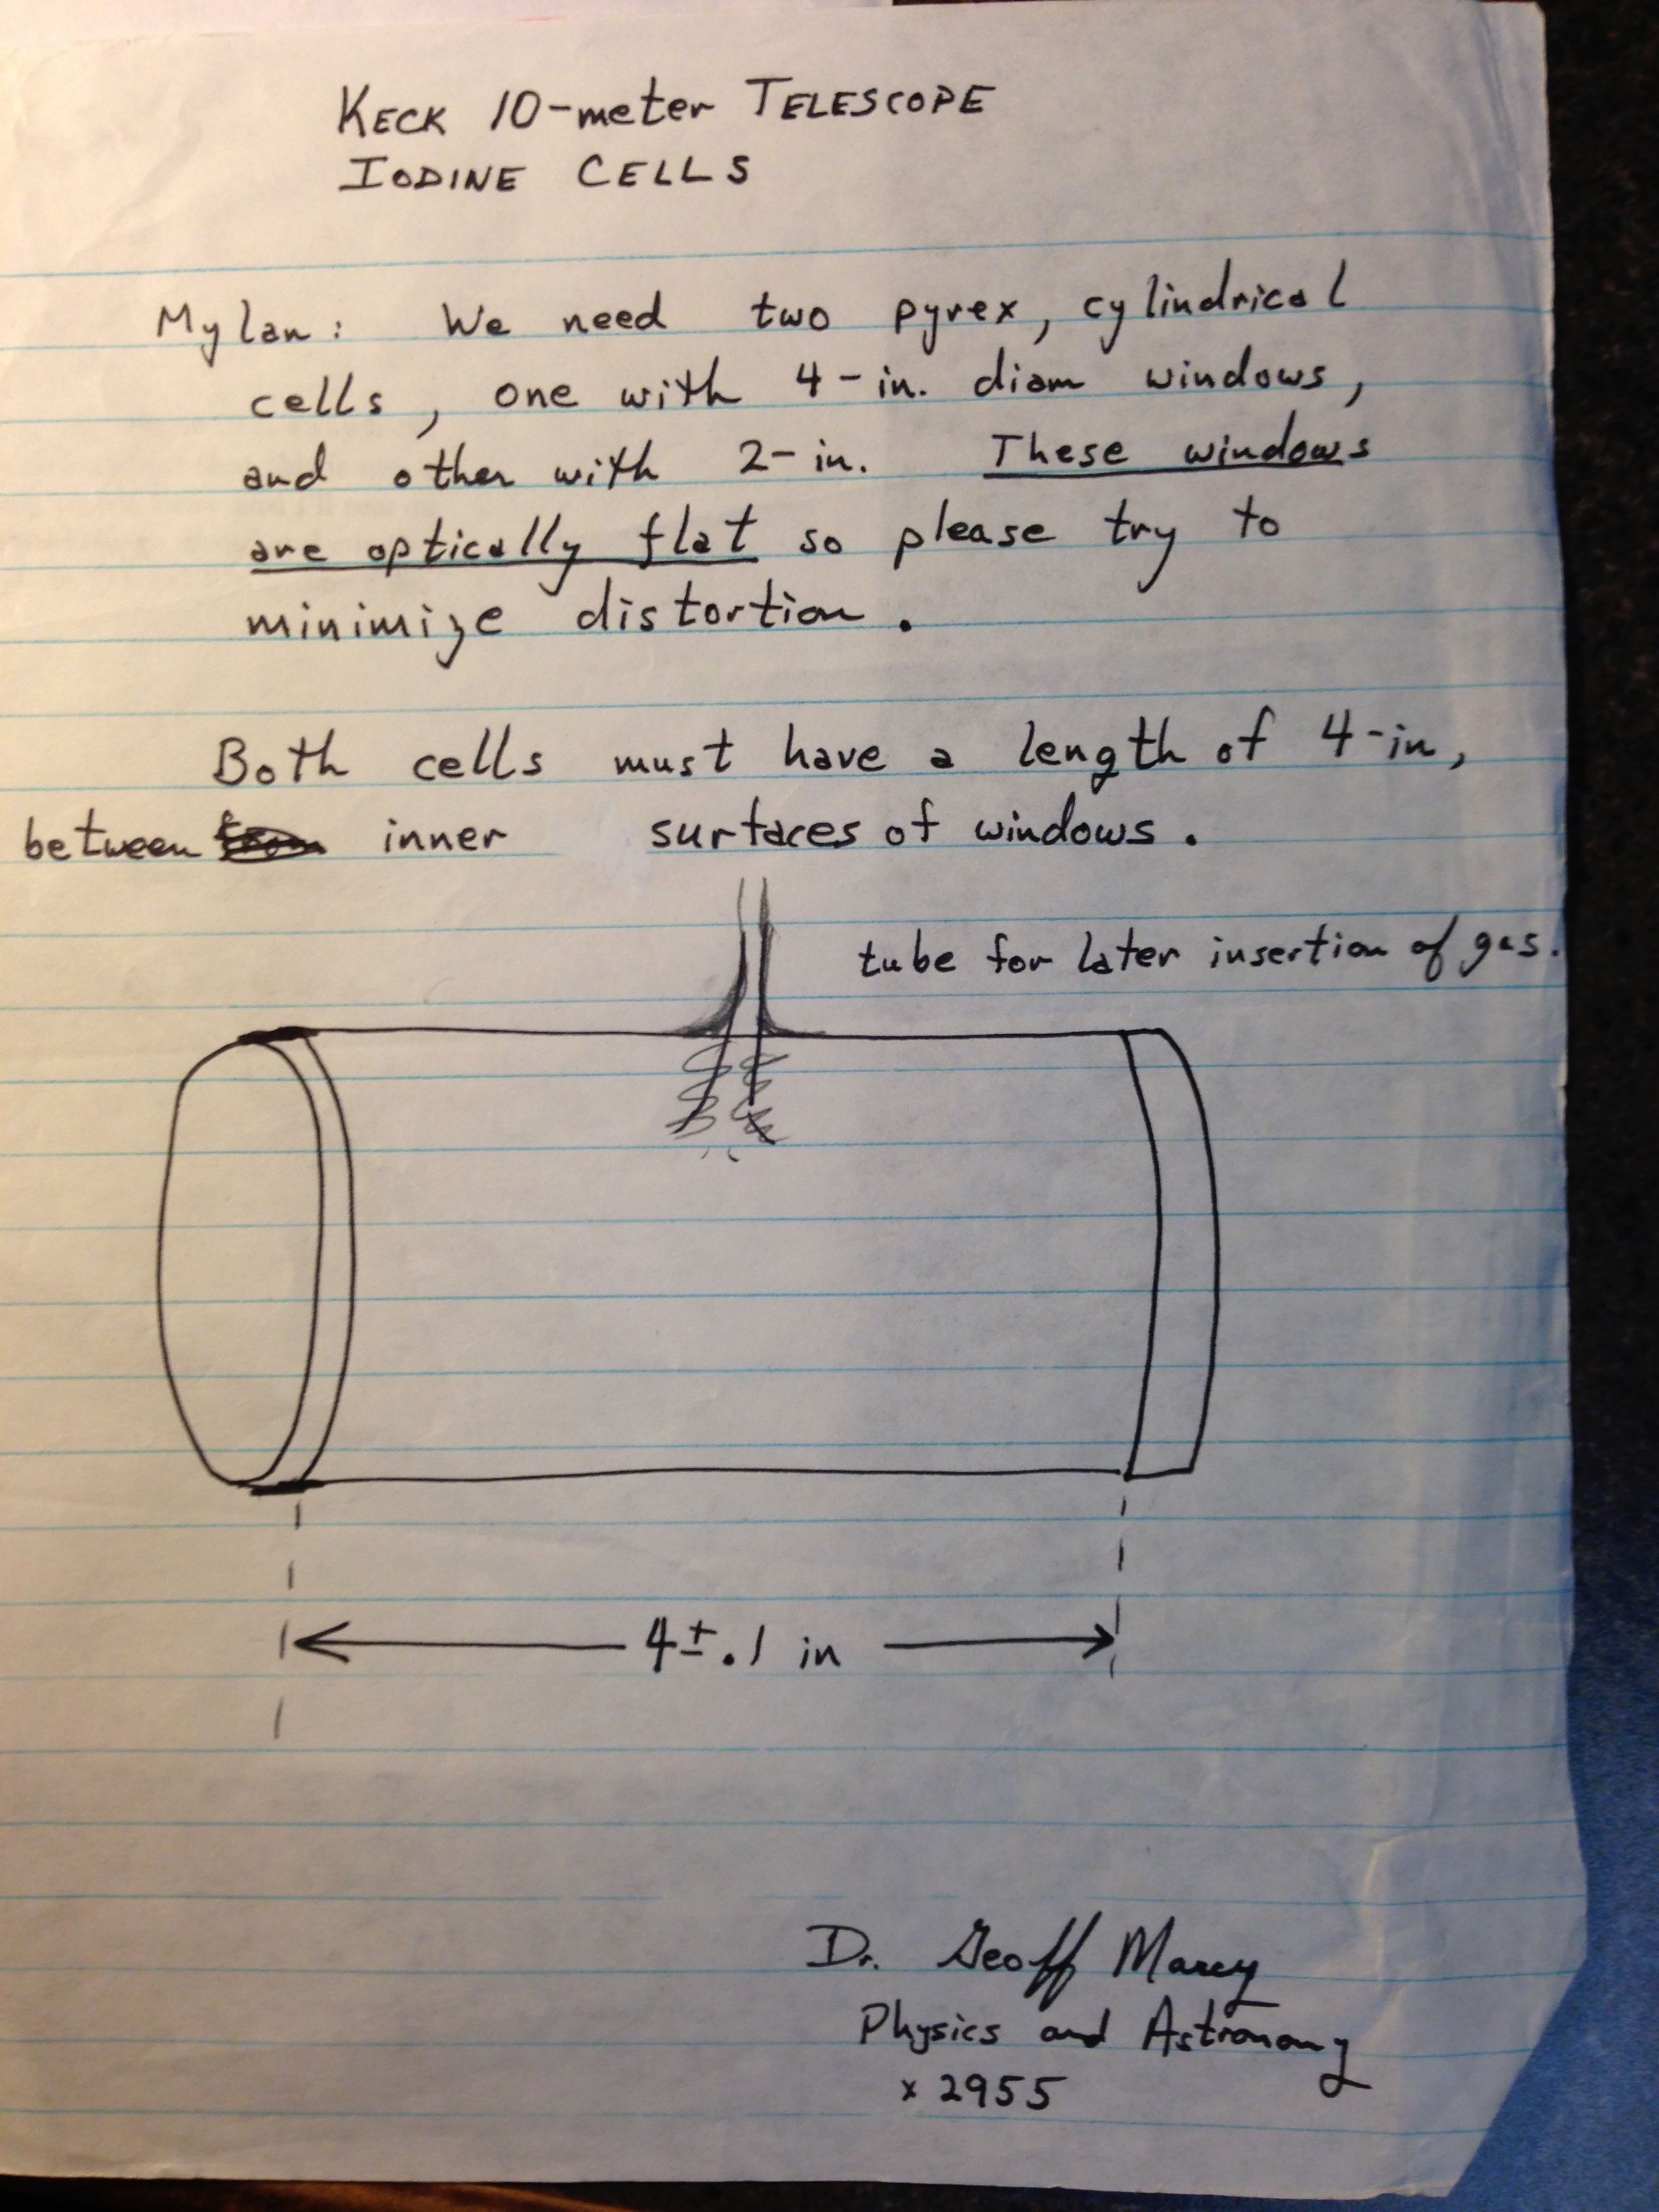 KECK 10-meter TELESCOPE
IODINE CELLS
Mylan: We need two pyrex, cylindrical
cells, one with 4-in. diam windows,
and other with 2-in. These windows
are optically flat so please try to
minimize distortion.
Both cells must have a length of 4-in,
between inner surfaces of windows.
tube for later insertion of gas.
4±.1 in
Dr. Geoff Marcy
Physics and Astronomy
x 2955